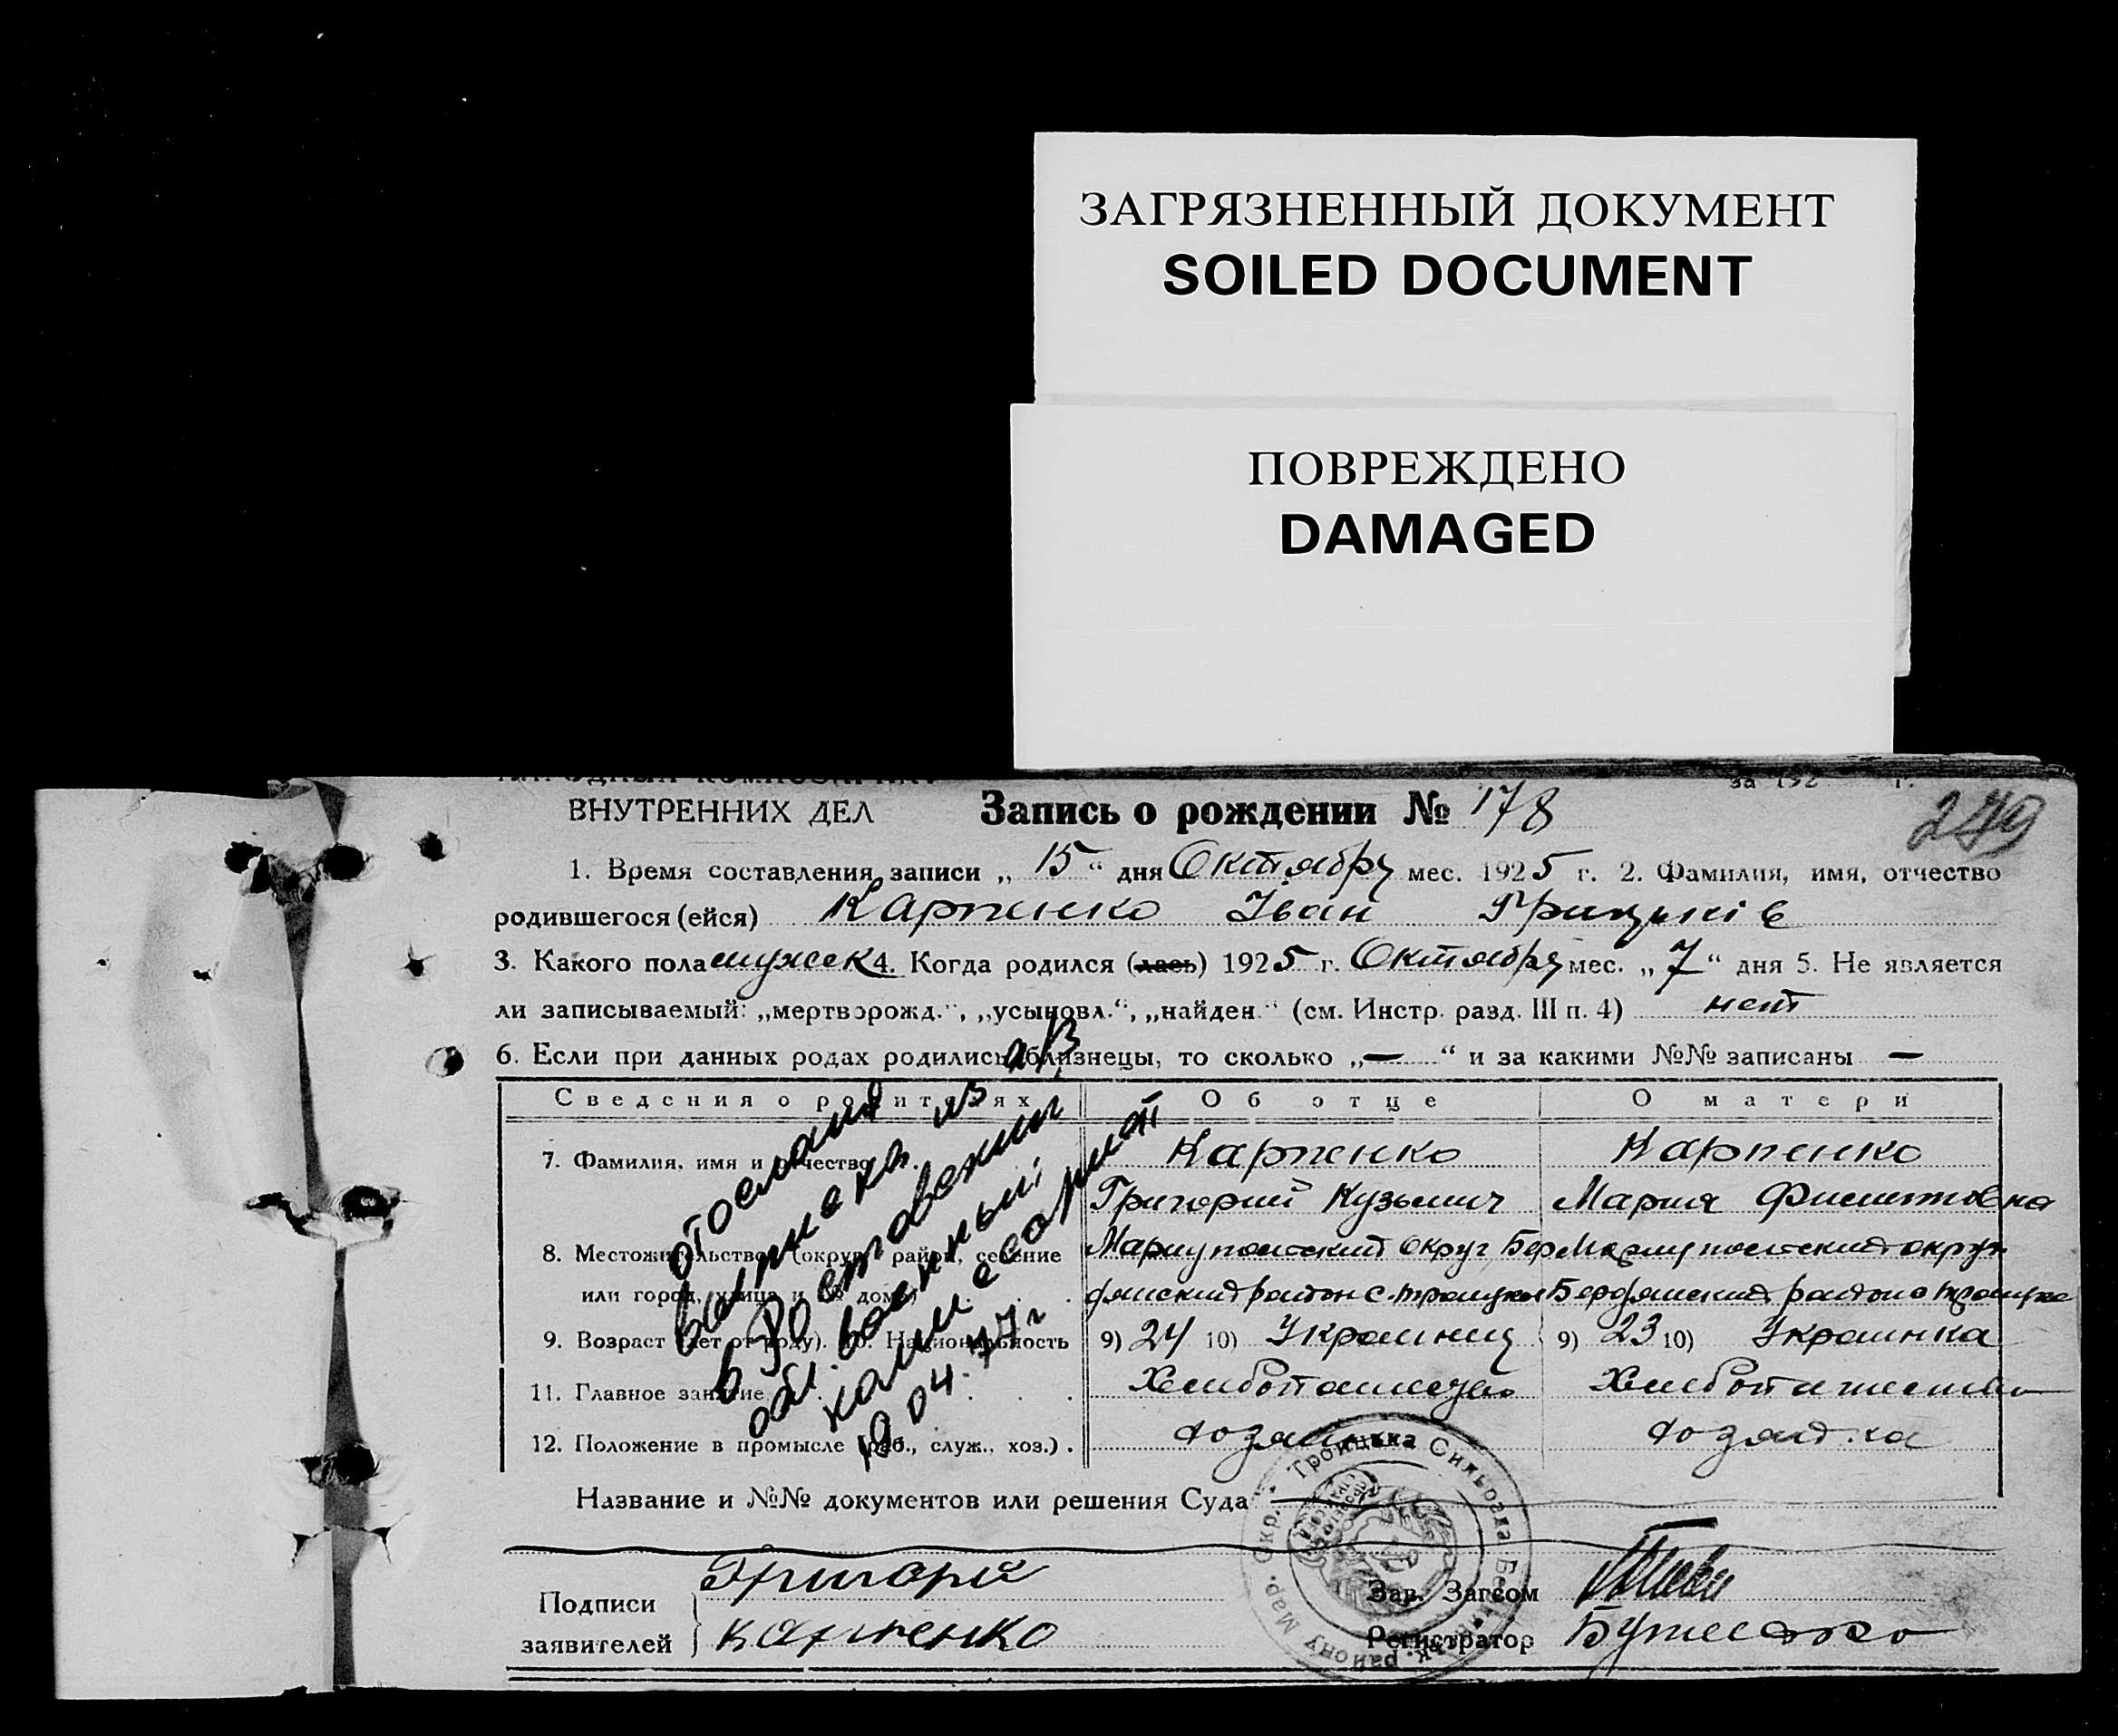 ЗАГРЯЗНЕННЫЙ ДОКУМЕНТ
SOILED DOCUMENT
ПОВРЕЖДЕНО
DAMAGED
за 192 г.
ВНУТРЕННИХ ДЕЛ Запись о рождении № 178 249
1. Время составления записи „ 15 “ дня Октября мес. 1925 г. 2. Фамилия, имя, отчество
родившегося (ейся) Карпенко Іван Грицьків
3. Какого пола мужск 4. Когда родился (лась) 1925 г. Октября мес. „ 7 “ дня 5. Не является
ли записываемый: „мертворожд.“, „усыновл.“, „найден.“ (см. Инстр. разд. III п. 4) нет
6. Если при данных родах родились близнецы, то сколько „ — “ и за какими №№ записаны —
Сведения о родителях Об отце О матери
7. Фамилия, имя и отчество Карпенко Карпенко
Григорий Кузьмич Мария
8. Местожительство (округ, район, селение Мариупольский округ Бер Мариупольский округ
или город, улица и № дома) дянский район с. Троицкое Бердянский район с Троицкое
9. Возраст (лет от роду). 10. Национальность 9) 24 10) Украинец 9) 23 10) Украинка
11. Главное занятие Хлебопашество Хлебопашество
12. Положение в промысле (раб., служ., хоз.) . хозяин хозяйка
отослана
выписка из а/з
в Ростовский
обл. военный
комиссариат
19 04. 47 г
Название и №№ документов или решения Суда
Троицька Сильрада Мар. Окр. району
Подписи Григорій Зав. Загсом
заявителей Карпенко Регистратор